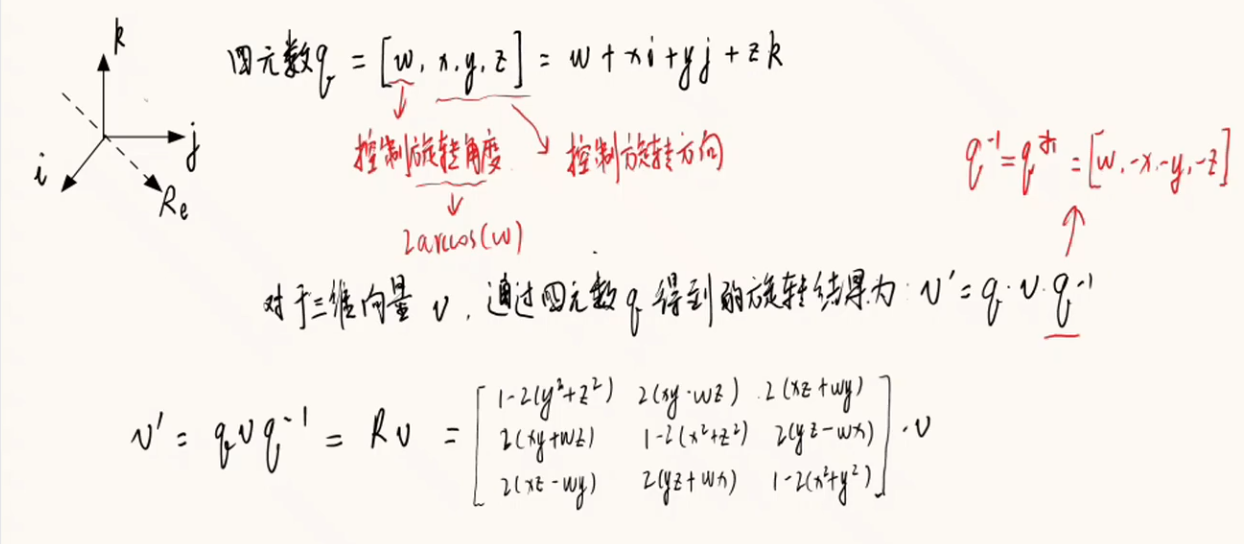 k
j
i
Re
四元数q = [w, x, y, z] = w + xi + yj + zk
控制旋转角度
控制旋转方向
2arccos(w)
q⁻¹ = q* = [w, -x, -y, -z]
对于三维向量 v, 通过四元数 q 得到的旋转结果为: v' = q · v · q⁻¹
v' = q v q⁻¹ = R v = [ 1-2(y²+z²) 2(xy-wz) 2(xz+wy)
2(xy+wz) 1-2(x²+z²) 2(yz-wx)
2(xz-wy) 2(yz+wx) 1-2(x²+y²) ] · v